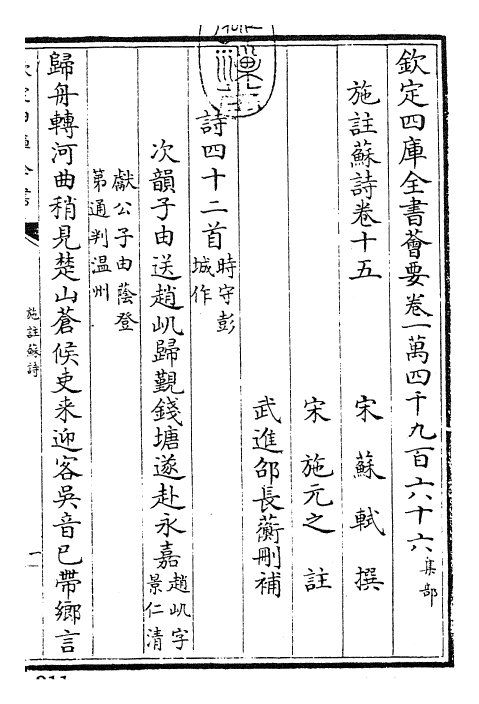 欽定四庫全書薈要卷一萬四千九百六十六集部
施註蘇詩卷十五
宋蘇軾撰
宋施元之註
武進邵長蘅刪補
詩四十二首時守彭城作
次韻子由送趙㞦歸覲錢塘遂赴永嘉趙㞦字景仁清
獻公子由蔭登第通判温州
歸舟轉河曲稍見楚山蒼候吏来迎客吳音已帶鄉言
施註蘇詩
一